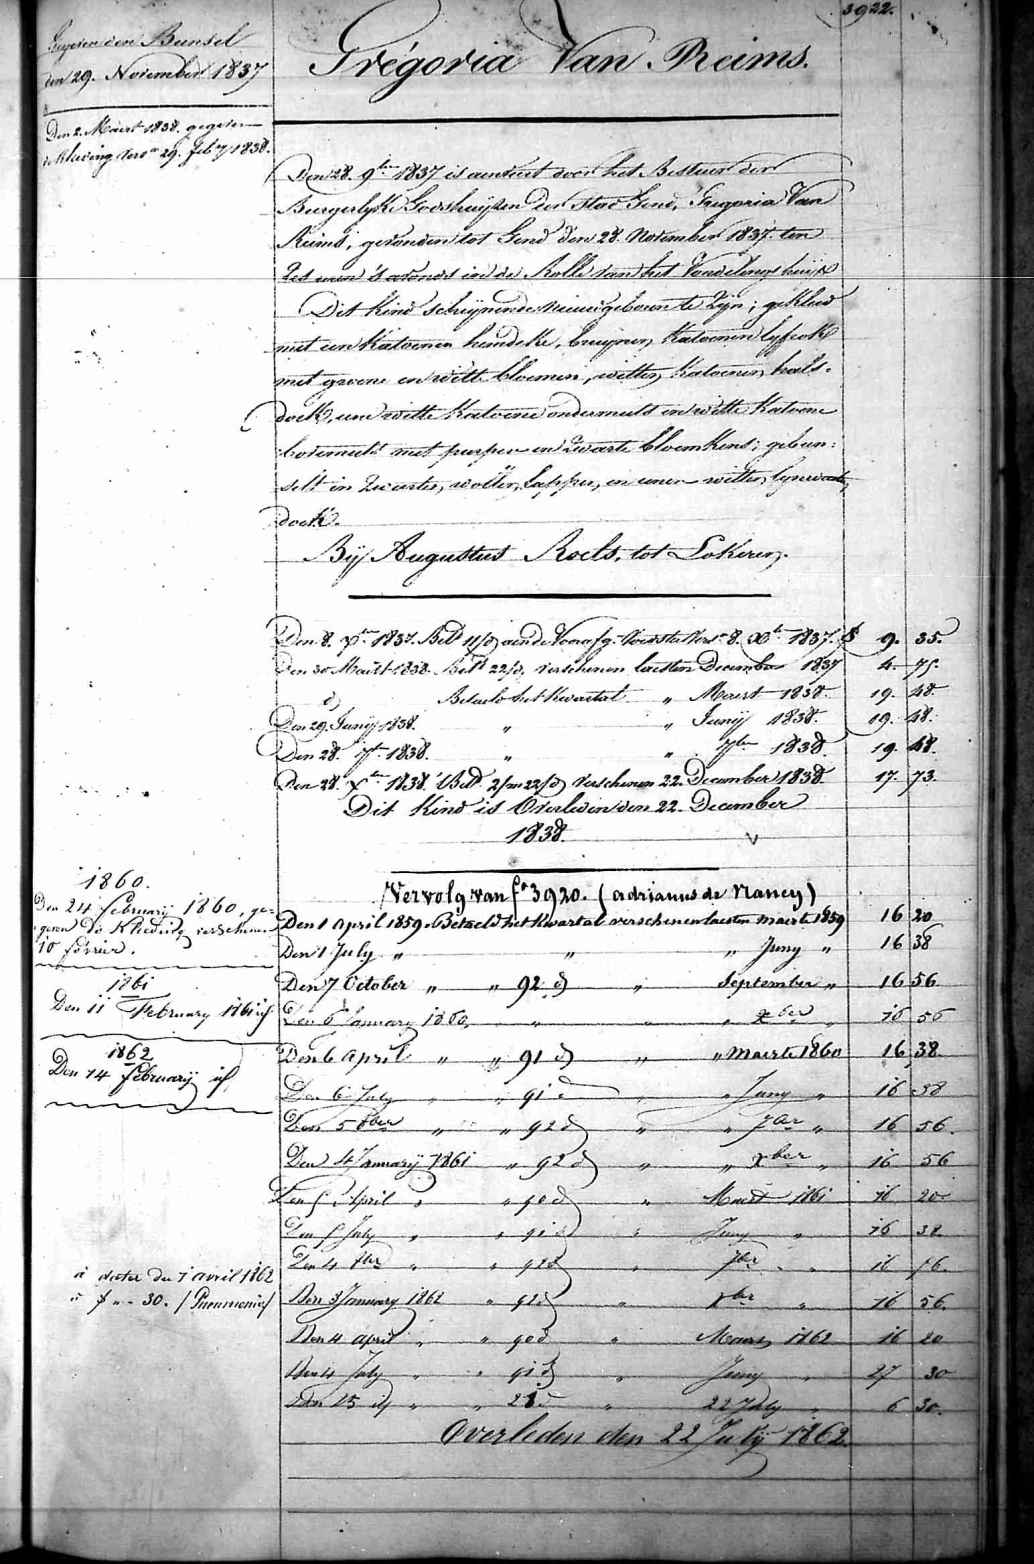 3922.
Gegeven den Bunsel
den 29. November 1837
Grégoria Van Reims.
Den 2. Maert 1838. gegeven
Kleeding vers. 29. feb.y 1838.
Den 28. 9ber 1837 is aenveert door het Bestuer der
Burgerlyke Godshuyzen der Stad Gend, Gregoria Van
Reims, gevonden tot Gend den 28. November 1837. ten
zes uren 's avonds in de Rolle van het Vondelings huys
Dit Kind scheynende nieuwgeboren te zyn; gekleed
met een Katoenen hemdeke, bruynen, Katoenen lyfrok
met groene en witte bloemen, witten, Katoenen, hals-
doek, eene witte Katoene ondermuts en witte Katoene
bovenmuts met purper en zwarte bloemkens; gebun-
selt in zwarten, wollen, lappen, en eenen witten, lynwaete,
doek.
Bij Augustus Roels, tot Lokeren.
Den 8. Xber 1837. Bet. 11/d aen de Vers. 8. Xber 1837. 9. 35.
Den 30 Maert 1838. Bet. 22/d, verschenen laesten December 1837 4. 75.
d° Betaeld het Kwartael „ Maert 1838. 19. 48.
Den 29. Junij 1838. „ „ Junij 1838. 19. 48.
Den 28. 7br 1838. „ „ 7ber 1838. 19. 48.
Den 28. Xber 1838. Bet. 2/m 22/d verschenen 22. December 1838 17. 73.
Dit Kind is Overleden den 22. December
1838.
Vervolg van f° 3920. (adrianus de Nancy)
1860.
Den 24 february 1860, ge-
geven de Kleeding verschenen
10 février.
Den 1 april 1859. Betaeld het Kwartal verschenen laesten maerte 1859 16 20
Den 1 July „ „ „ Juny „ 16 38
Den 7 October „ „ 92 d „ September „ 16 56
1861
Den 11 February 1861 id
Den 6 January 1860, „ „ „ xber „ 16 56
Den 6 april „ „ 91 d „ „ maerte 1860 16 38
1862
Den 14 february id
Den 6 July „ „ 91 d „ „ Juny „ 16 38
Den 5 8ber „ „ 92 d „ „ 7ber „ 16 56.
Den 4 January 1861 „ 92 d „ „ xber „ 16 56
Den 5 April „ „ 90 d „ Maert 1861 16 20
Den 5 July „ „ 91 d „ Juny „ 16 38.
Den 4 8ber „ „ 92 d 7ber „ 16 56.
à dater du 1 avril 1862
à f „ - 30. (Pneumonie)
Den 3 January 1862 „ 92 d „ xber „ 16 56.
Den 4 april „ „ 90 d „ Maert 1862 16 20
Den 4 July „ „ 91 d „ Juny „ 27 30
Den 25 id „ „ 21 d „ 22 July „ 6 30.
Overleden den 22 July 1862.